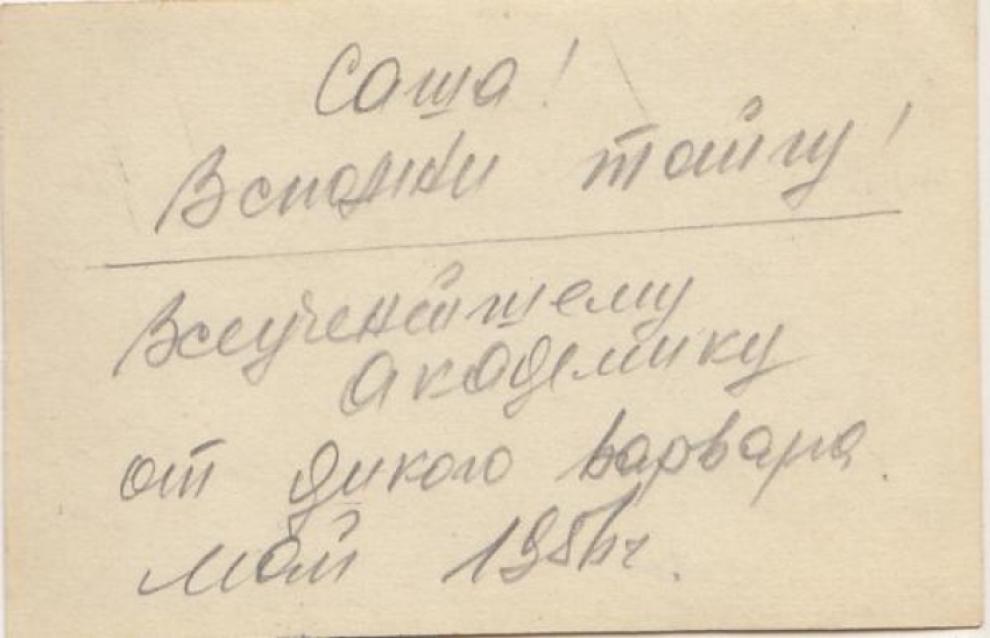 Саша!
Вспомни тайгу!
Всеученейшему
академику
от дикого варвара.
Май